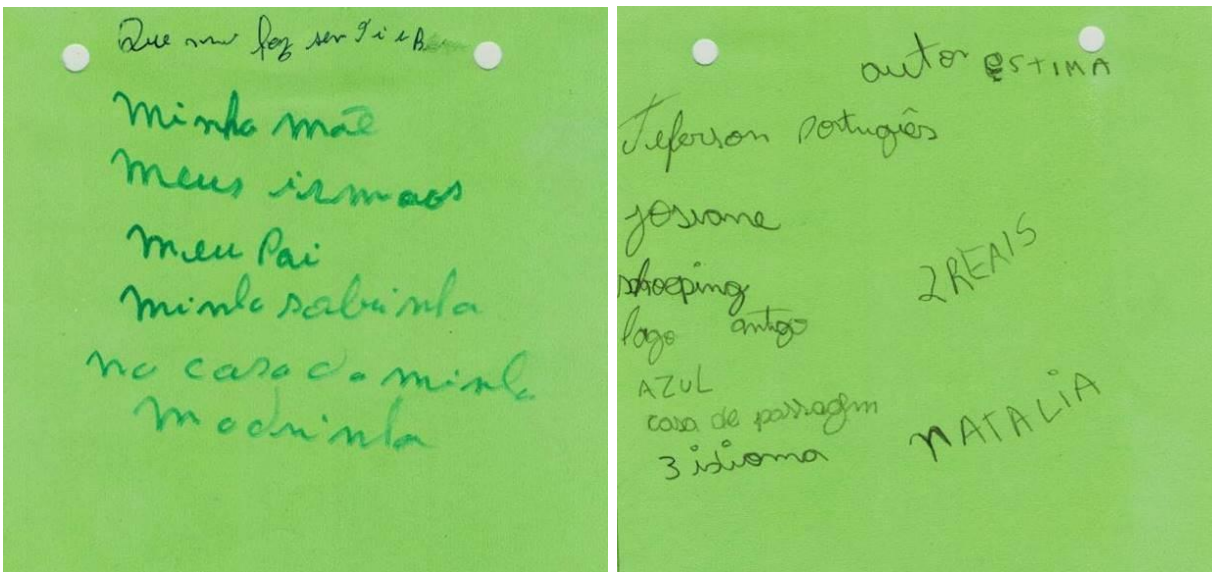 Que mi faz sentie B
minha mãe
meus irmaos
meu Pai
minha sobrinha
na casa da minha
madrinha
autor ESTIMA
Jeferson Português
Josiane
shoeping
2 REAIS
lago antigo
AZUL
casa de passagem
NATALIA
3 idioma